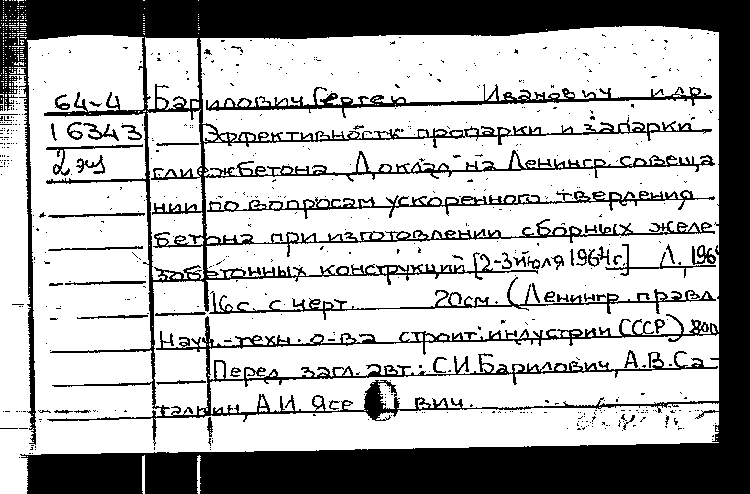 64-4 Барилович, Сергей Иванович и др.
16343 Эффективность пропарки и запарки
2 экз глиежбетона. Доклад на Ленингр. совеща
нии по вопросам ускоренного твердения
бетона при изготовлении сборных желе-
зобетонных конструкций [2-3 июля 1964 г.] Л., 196
16 с. с черт. 20 см. (Ленингр. правл.
Науч.-техн. о-ва строит. индустрии СССР) 800
Перед загл. авт.: С.И. Барилович, А.В. Са-
талкин, А.И. Ясе вич.